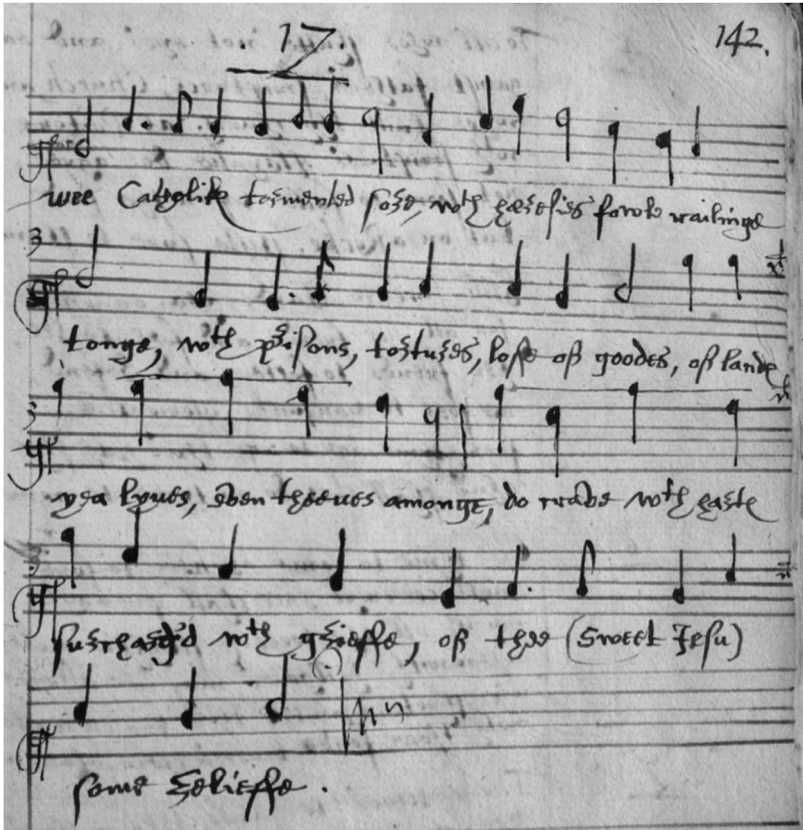 17.
142.
wee Catholik tormented sore, wth heresies fowle railinge
tonge, wth prisons, tortures, losse of goodes, of lande
yea lyves, even theeves amonge, do crave wth harte
surcharg'd wth grieffe, of thee (Sweet Jesu)
some relieffe.